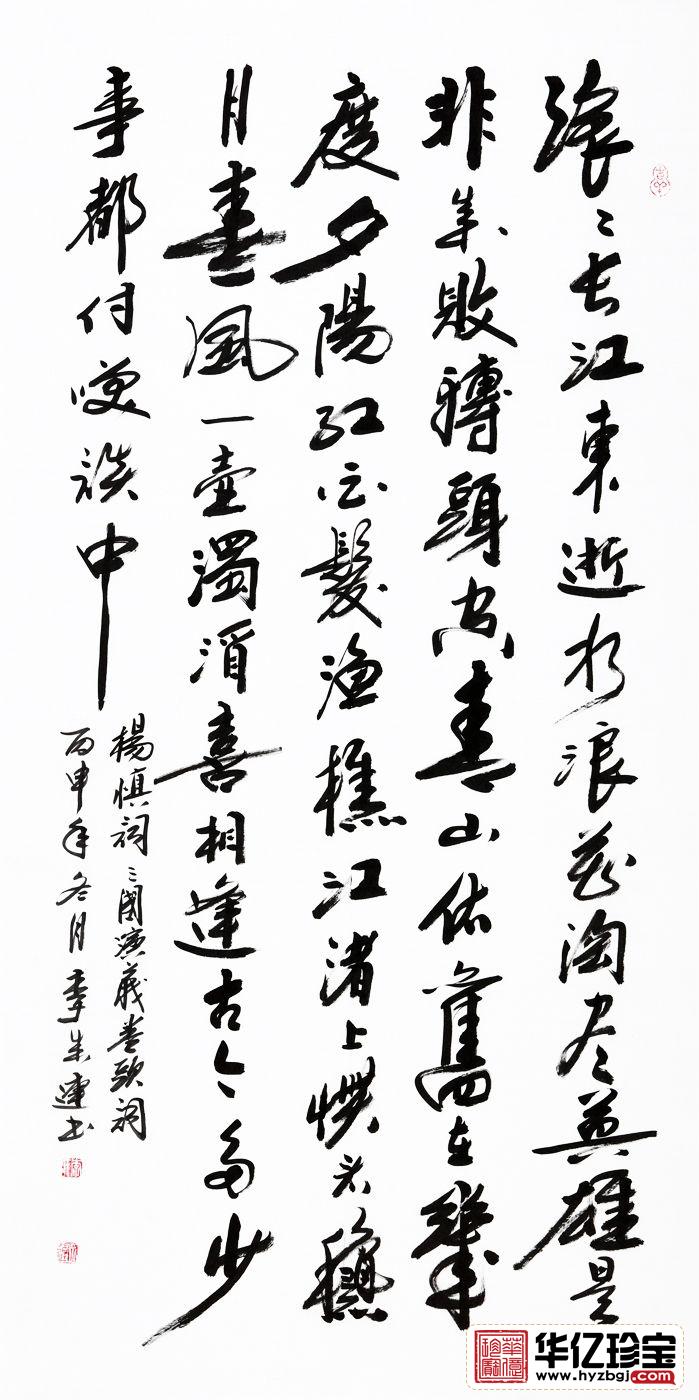 滚〻长江東逝水浪花淘尽英雄是
非成敗轉頭空青山依舊在幾
度夕陽红白髮渔樵江渚上惯看龝
月春風一壶濁酒喜相逢古今多少
事都付咲谈中
楊慎词三國演義卷头词
丙申年冬月李成连书
华亿珍宝
www.hyzbgj.com